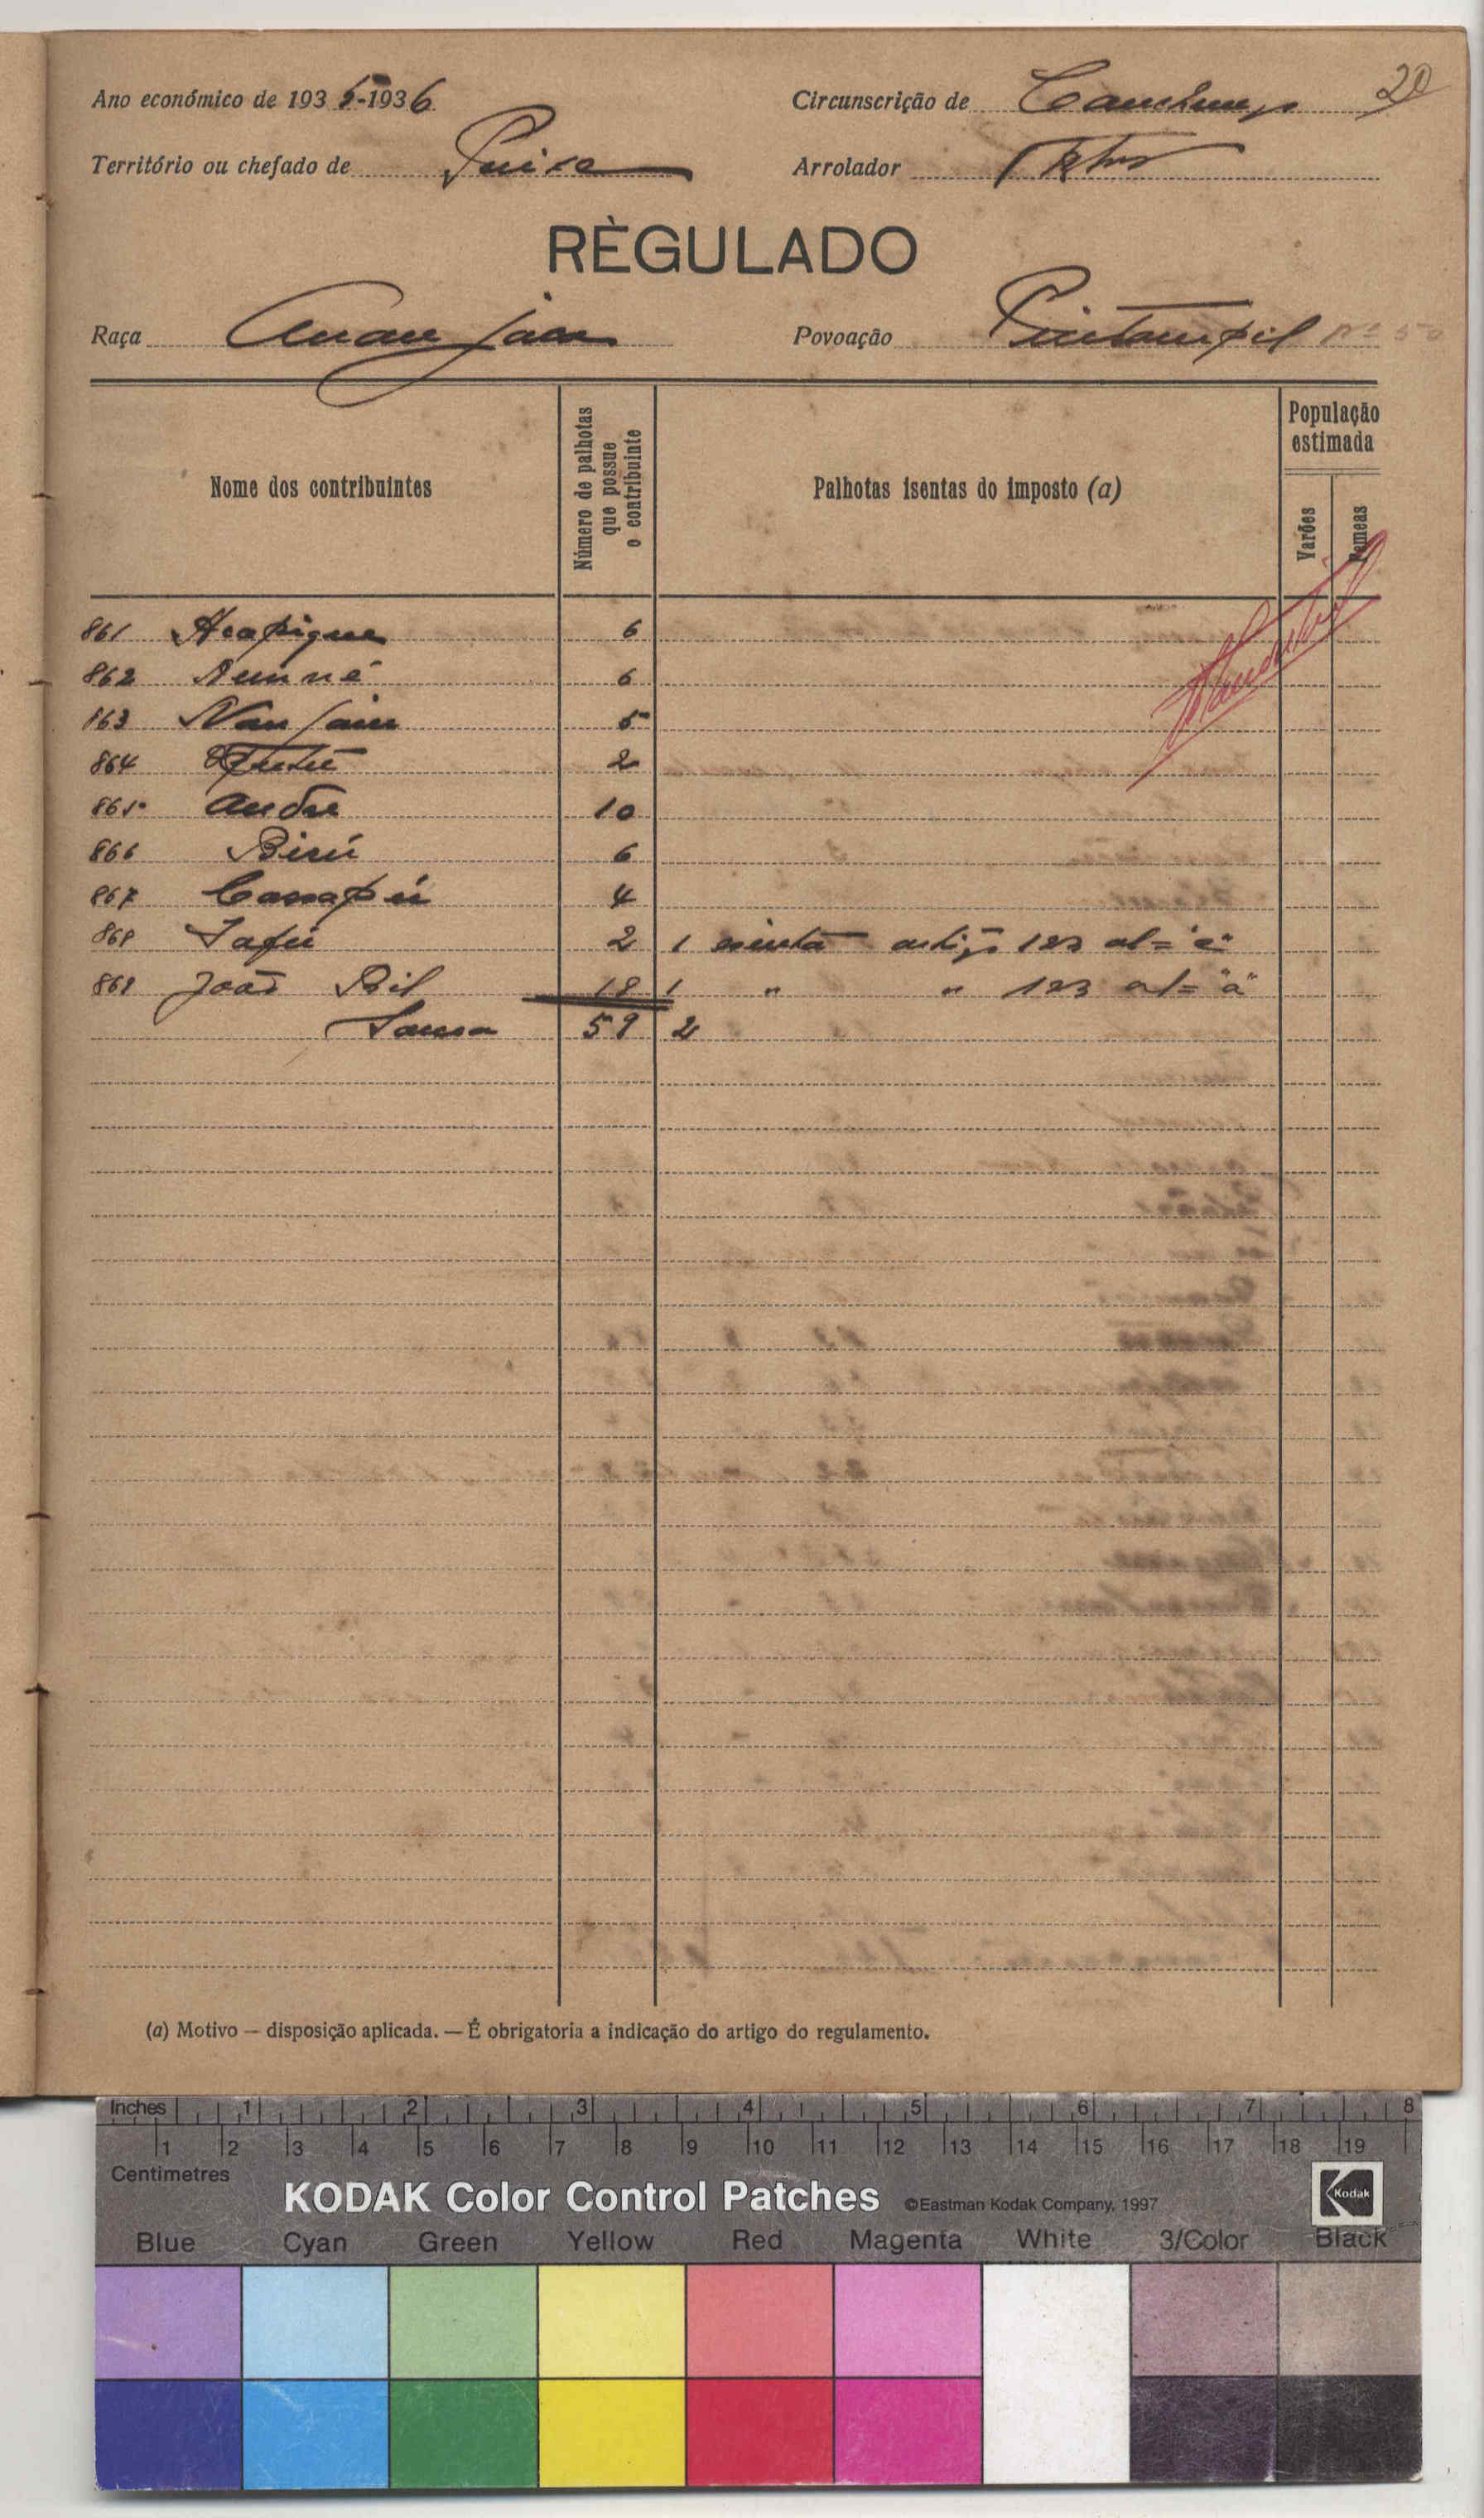 20
Ano económico de 1935-1936 Circunscrição de Canchungo
Território ou chefado de Arrolador
RÈGULADO
Raça Manjaca Povoação nº 50
Nome dos contribuintes
Número de palhotas que possue o contribuinte
Palhotas isentas do imposto (a)
População estimada
Varões
Femeas
861 6
862 6
863 5
864 2
865 André 10
866 Birú 6
867 4
868 2 1 isenta artigo 123 al=
869 João 18 1 " " 123 al= "a"
Soma 59 2
(a) Motivo — disposição aplicada. — É obrigatoria a indicação do artigo do regulamento.
Inches 1 2 3 4 5 6 7 8
1 2 3 4 5 6 7 8 9 10 11 12 13 14 15 16 17 18 19
Centimetres
KODAK Color Control Patches ©Eastman Kodak Company, 1997 Kodak
Blue Cyan Green Yellow Red Magenta White 3/Color Black